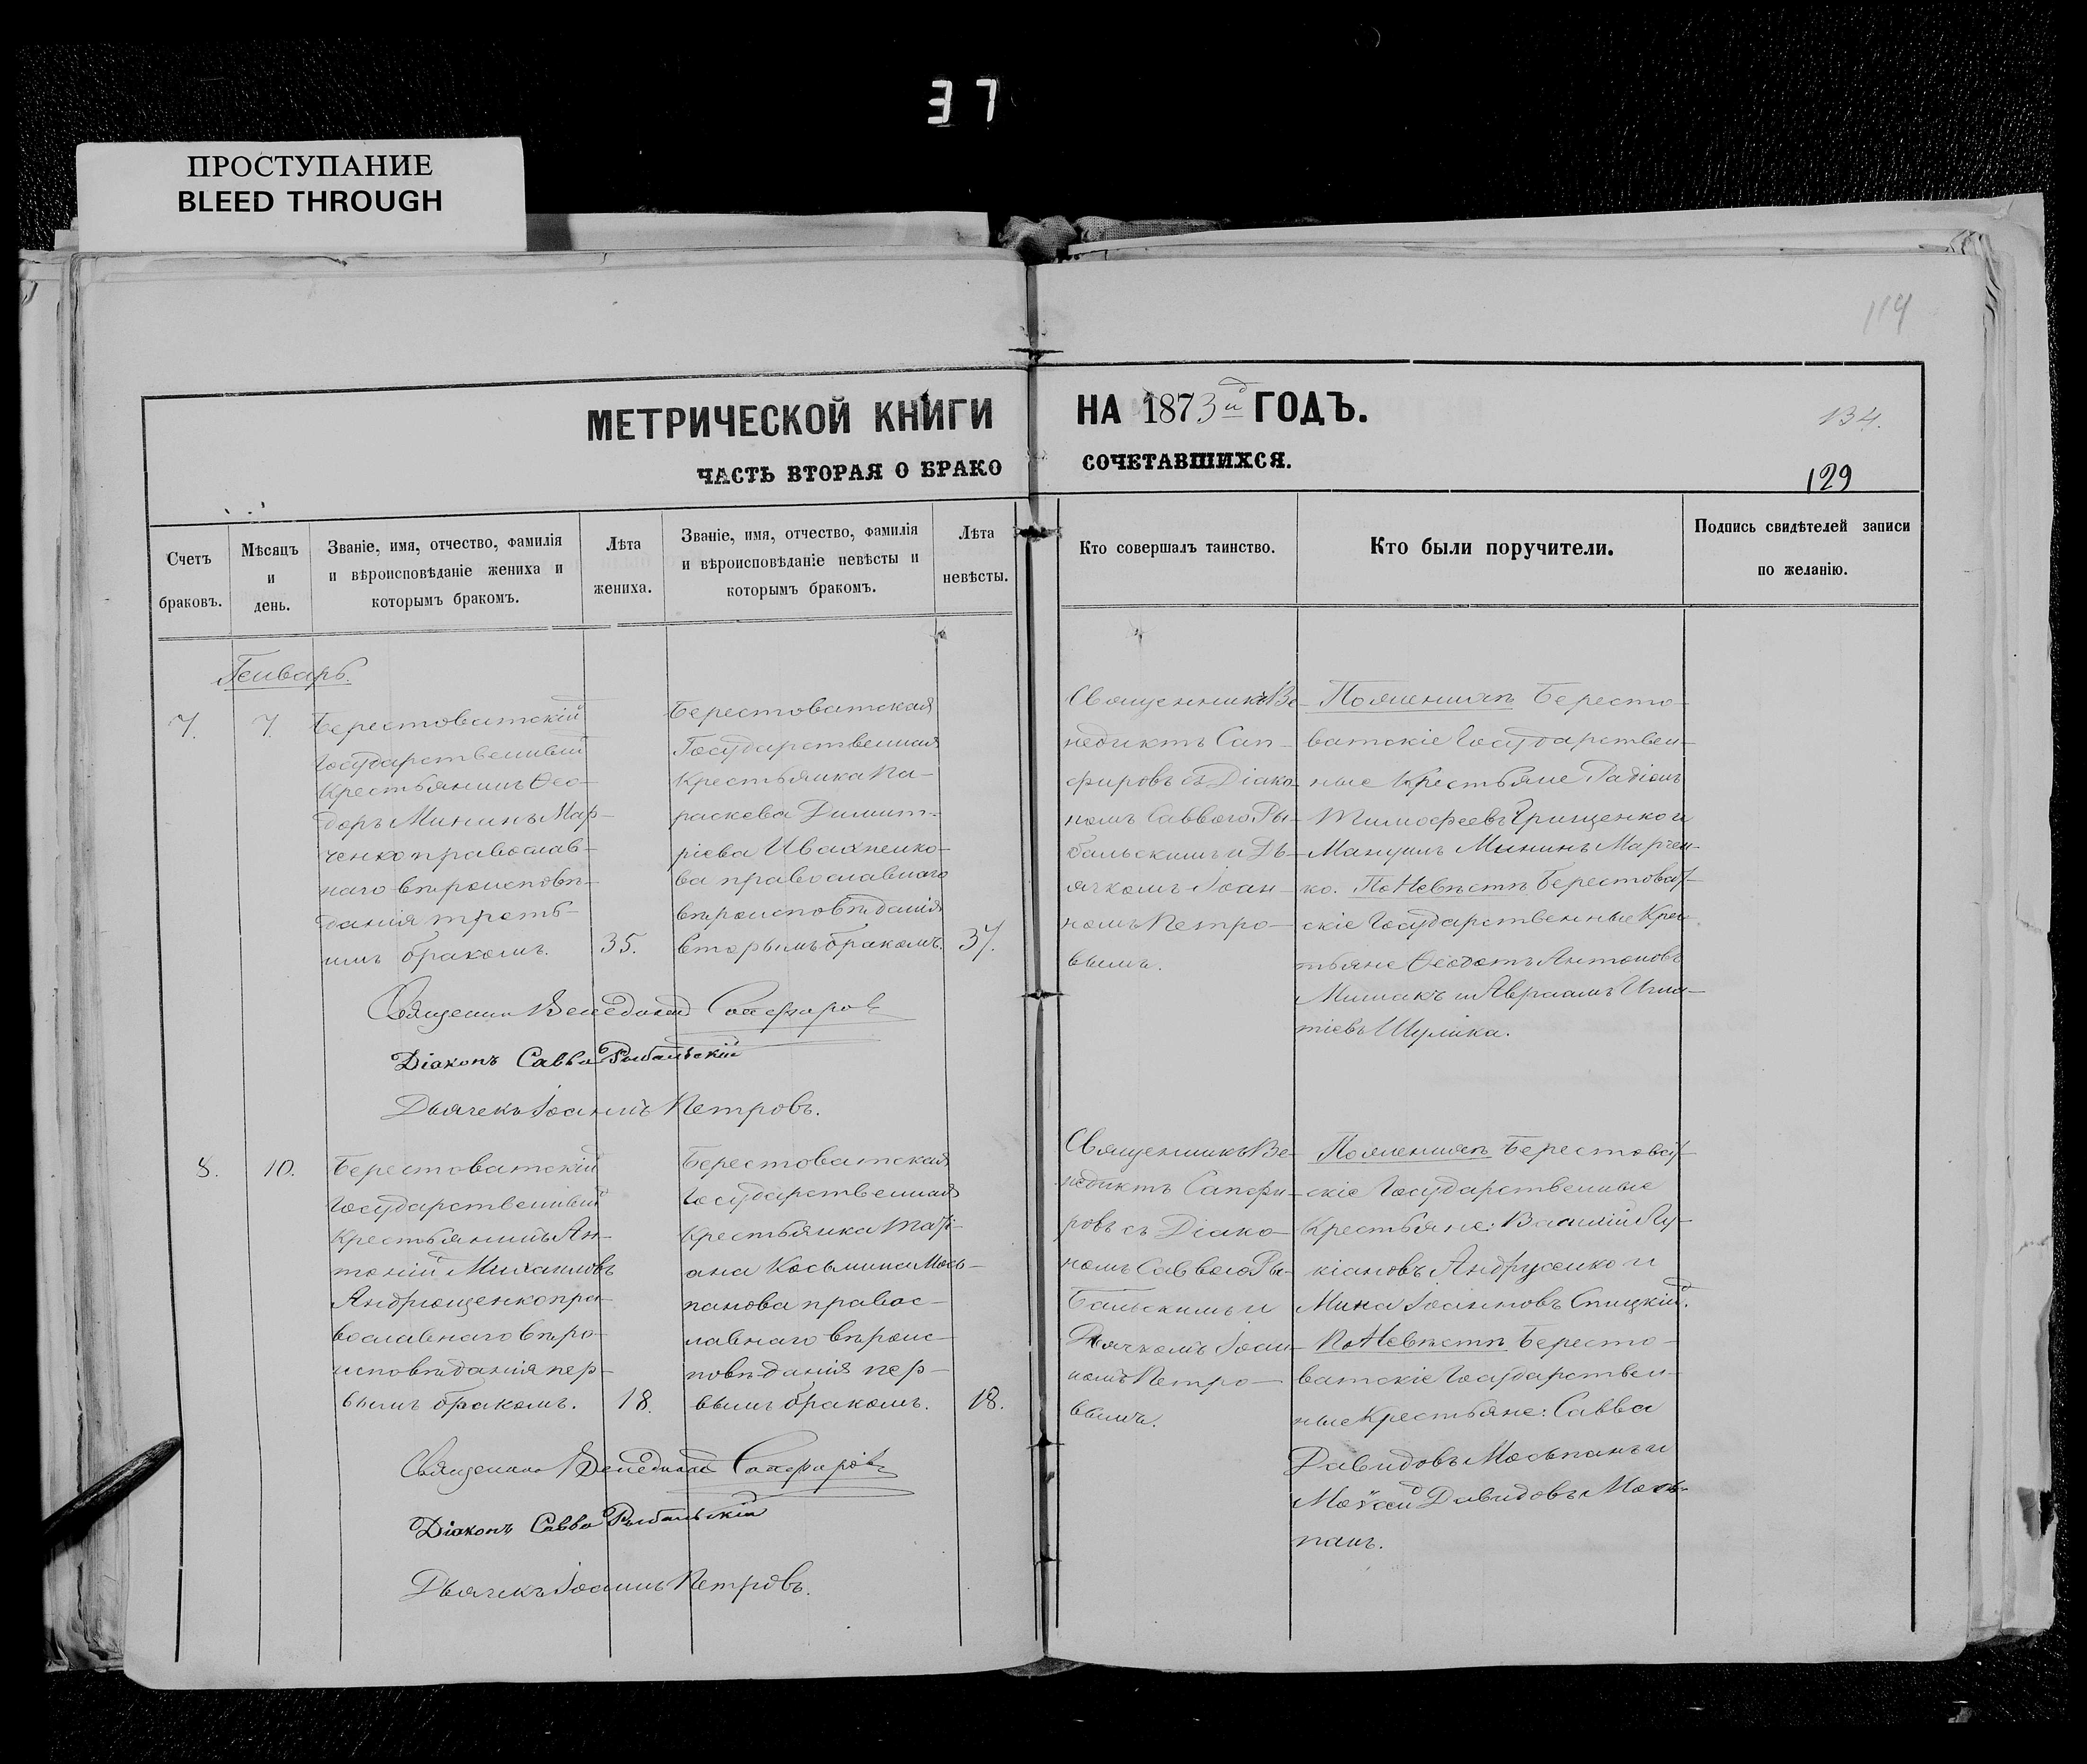 37
ПРОСТУПАНИЕ
BLEED THROUGH
114
МЕТРИЧЕСКОЙ КНИГИ НА 1873й ГОДЪ.
134.
ЧАСТЬ ВТОРАЯ О БРАКО СОЧЕТАВШИХСЯ.
129
Счетъ
браковъ.
Мѣсяцъ
и
день.
Званіе, имя, отчество, фамилія
и вѣроисповѣданіе жениха и
которымъ бракомъ.
Лѣта
жениха.
Званіе, имя, отчество, фамилія
и вѣроисповѣданіе невѣсты и
которымъ бракомъ.
Лѣта
невѣсты.
Кто совершалъ таинство.
Кто были поручители.
Подпись свидѣтелей записи
по желанію.
Генварь.
7.
7.
Берестоватскій
Государственный
Крестьянинъ Ѳео-
доръ Мининъ Мар-
ченко православ-
наго вѣроисповѣ-
данія треть-
имъ бракомъ.
35.
Берестоватская
Государственная
Крестьянка Па-
раскева Димит-
ріева Ивахненко-
ва православнаго
вѣроисповѣданія
вторымъ бракомъ.
37.
Священникъ Ве-
недиктъ Сап-
фировъ съ Діако-
номъ Саввою Ры-
бальскимъ и Дь-
ячкомъ Іоан-
номъ Петро-
вымъ.
По женихѣ Бересто-
ватскіе Государствен-
ные Крестьяне Родіонъ
Тимофеевъ Грищенко и
Мануилъ Мининъ Марчен-
ко. По Невѣстѣ Берестоват-
скіе Государственные Крес-
тьяне Ѳеодотъ Антоновъ
Мишакъ и Авраамъ Игна-
тіевъ Шулика.
Священникъ Венедиктъ Сапфировъ
Діаконъ Савва Рыбальскій
Дьячекъ Іоаннъ Петровъ.
8.
10.
Берестоватскій
Государственный
Крестьянинъ Ан-
тоній Михаиловъ
Андрющенко пра-
вославнаго вѣро-
исповѣданія пер-
вымъ бракомъ.
18.
Берестоватская
Государственная
Крестьянка Тати-
ана Косьмина Мось-
панова правос-
лавнаго вѣроис-
повѣданія пер-
вымъ бракомъ.
18.
Священникъ Ве-
недиктъ Сапфи-
ровъ съ Діако-
номъ Саввою Ры-
бальскимъ и
Дьячкомъ Іоан-
номъ Петро-
вымъ.
По женихѣ Берестоват-
скіе Государственные
Крестьяне: Василій Лу-
кіановъ Андрусенко и
Мина Іоанновъ Спицкій.
По Невѣстѣ Бересто-
ватскіе Государствен-
ные Крестьяне: Савва
Давидовъ Моспанъ и
Мокій Давидовъ Мось-
панъ.
Священникъ Венедиктъ Сапфировъ
Діаконъ Савва Рыбальскій
Дьячекъ Іоаннъ Петровъ.